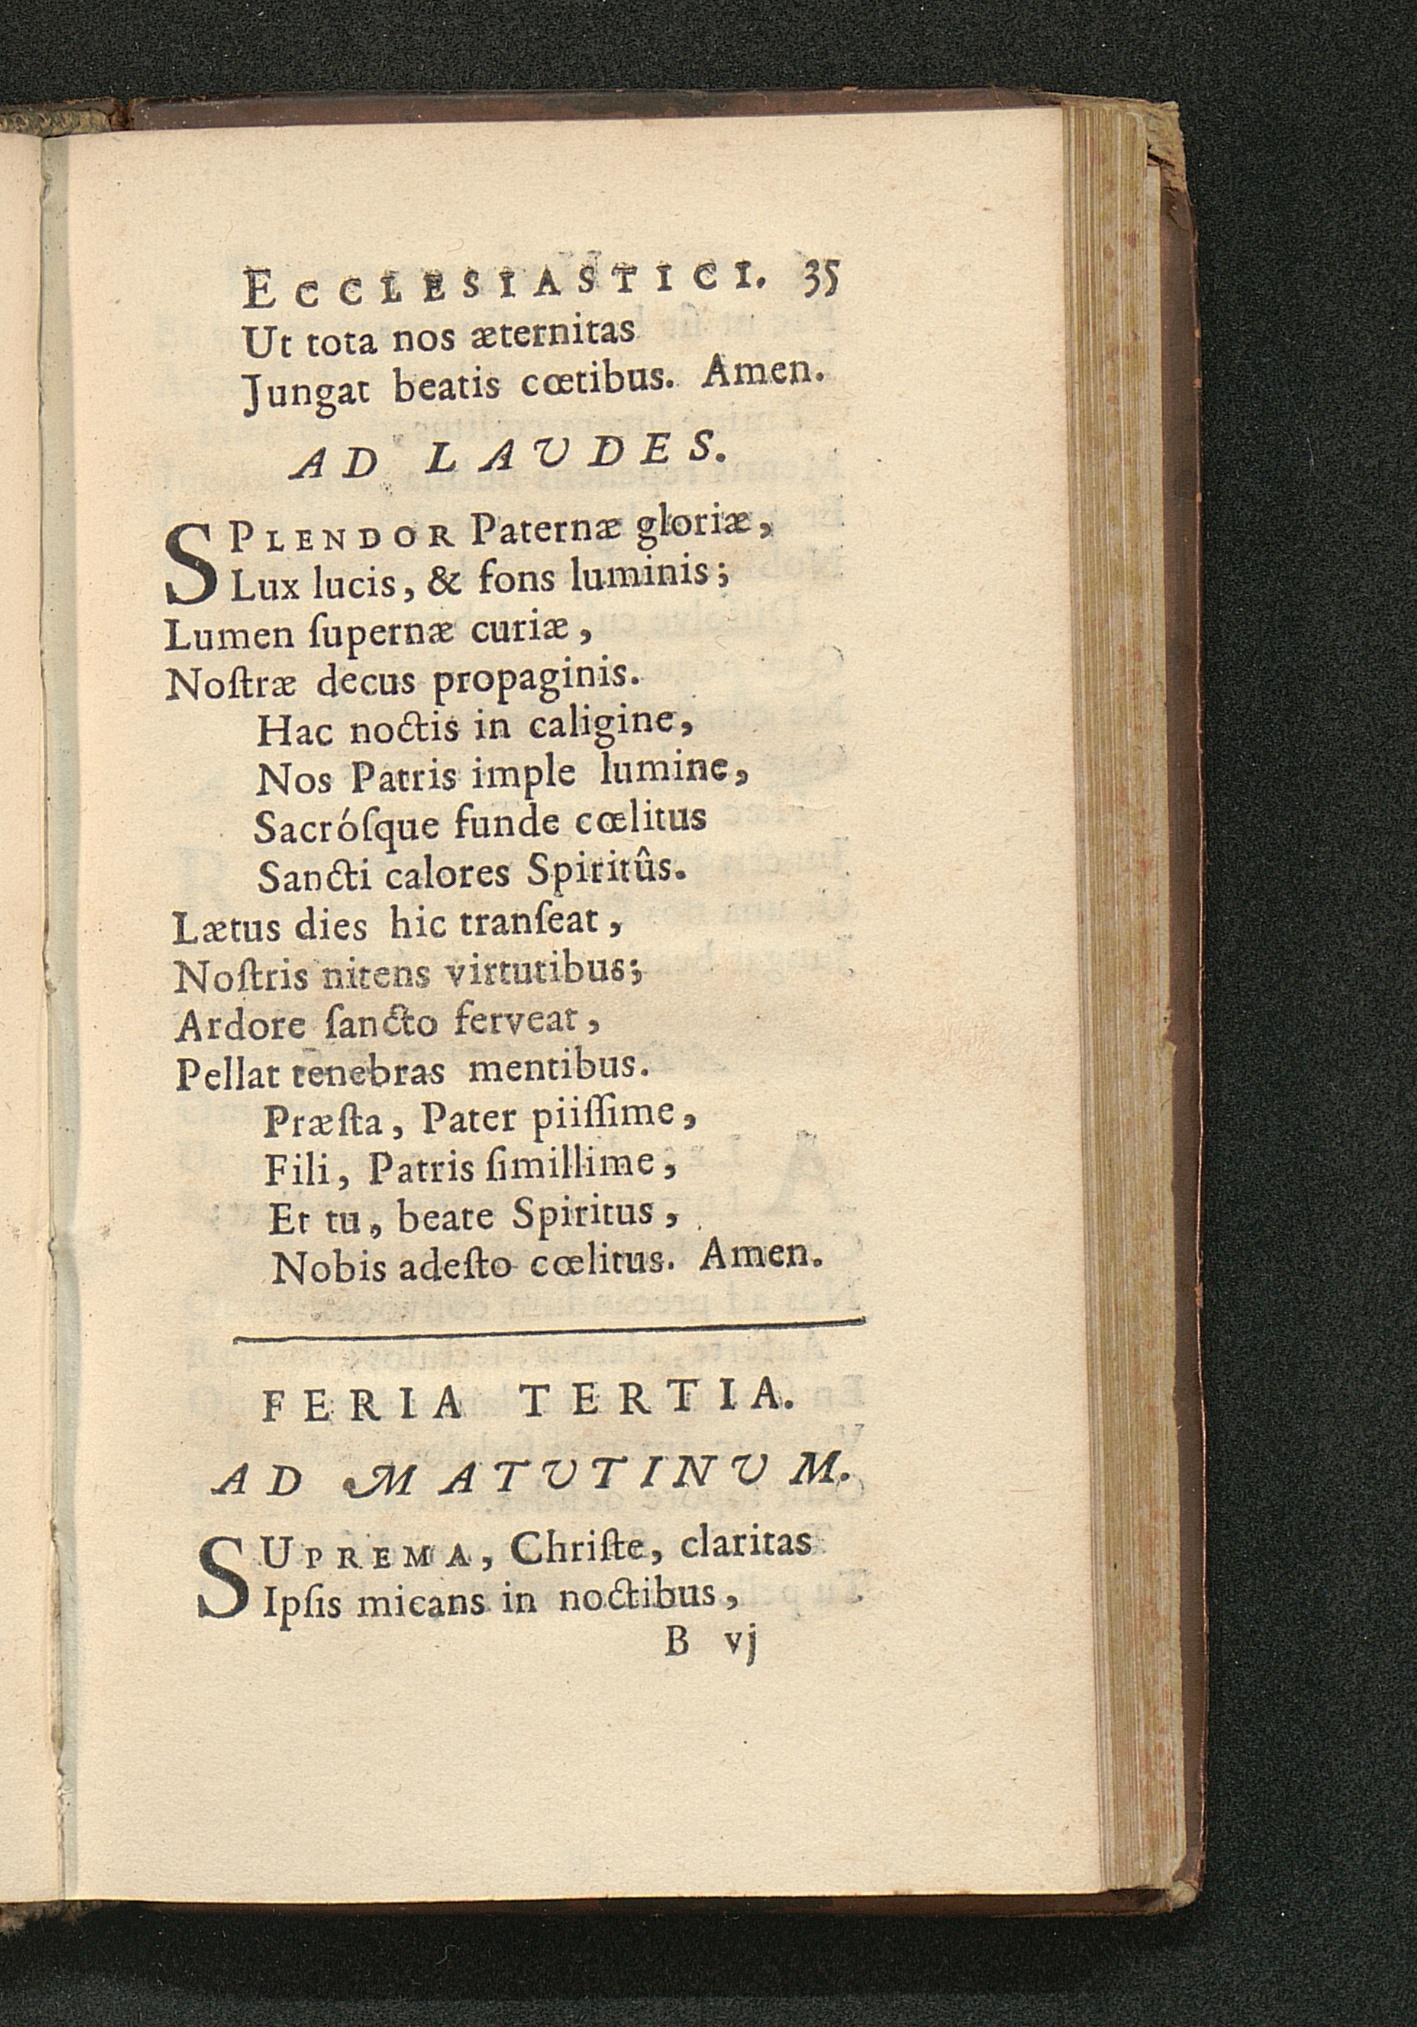 ECCLESIASTICI. 35
Ut tota nos æternitas
Jungat beatis cœtibus. Amen.
AD LAUDES.
SPLENDOR Paternæ gloriæ,
Lux lucis, & fons luminis;
Lumen ſupernæ curiæ,
Noſtræ decus propaginis.
Hac noctis in caligine,
Nos Patris imple lumine,
Sacróſque funde cœlitus
Sancti calores Spiritûs.
Lætus dies hic tranſeat,
Noſtris nitens virtutibus;
Ardore ſancto ferveat,
Pellat tenebras mentibus.
Præſta, Pater piiſſime,
Fili, Patris ſimillime,
Et tu, beate Spiritus,
Nobis adeſto cœlitus. Amen.
FERIA TERTIA.
AD MATUTINUM.
SUPREMA, Chriſte, claritas
Ipſis micans in noctibus,
B vj